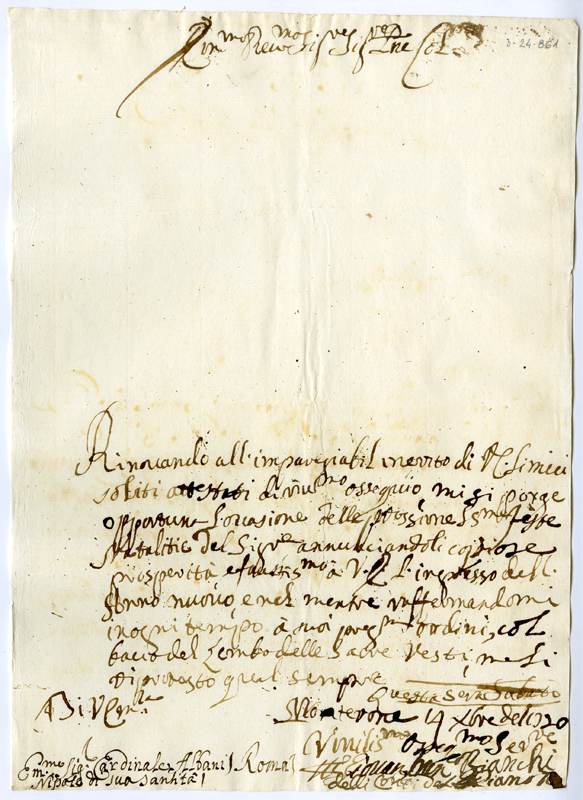 Em.mo e Rev.mo Sig.re Sig.re P.ne Col.
3-24-861
Rinovando all'impareggiabil merito di V.E. li miei
soliti attestati di div.mo ossequio, mi si porge
opportuna l'occasione delle prossime SS.me feste
Natalitie del Sig.re annunciandoli copiose
prosperità e faustis.mo à V.E. l'ingresso dell'
Anno nuovo, e nel mentre raffermandomi
in ogni tempo à suoi preg.mi ordini, col
bacio del Lembo delle Sacre Vesti, me li
protesto qual sempre
Di V. Em.za
Monterone 14 Xbre del 1720
Vmilis.mo Osseq.mo Ser.re
Bianchi
delli Conti di
Em.mo Sig. Cardinale Albani Roma
Nipote di Sua Santità